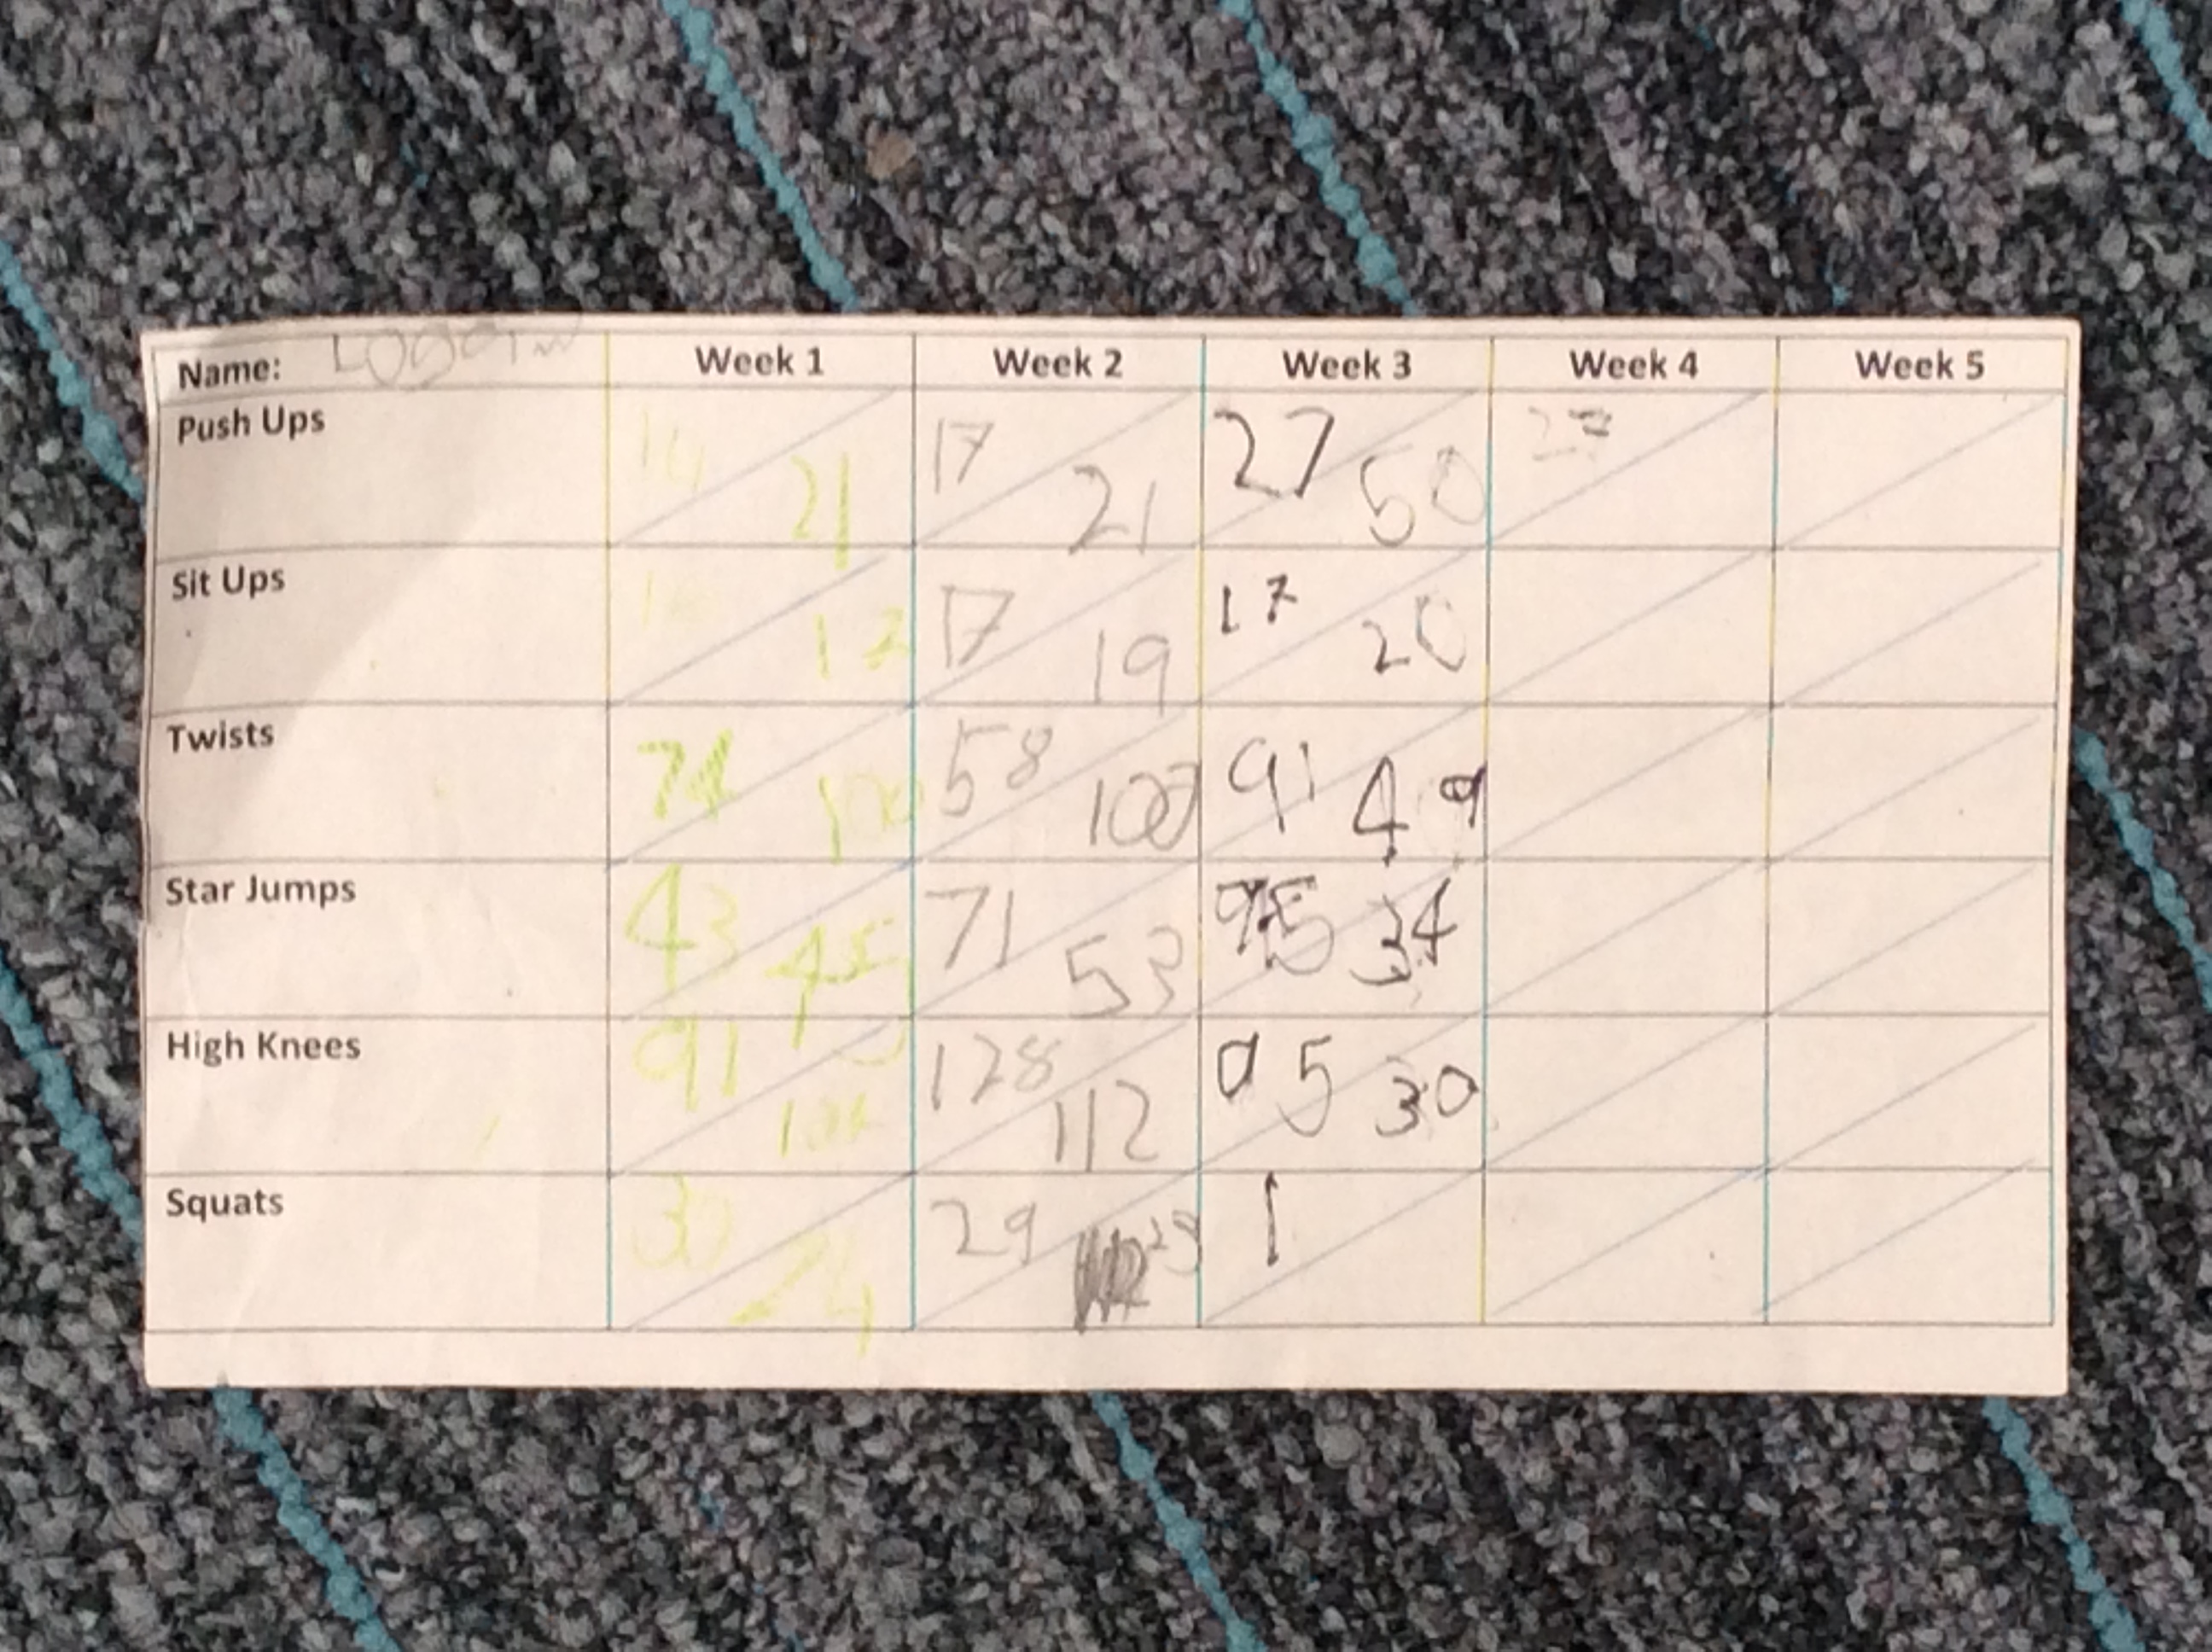 Name: Logan Week 1 Week 2 Week 3 Week 4 Week 5
Push Ups 14 21 17 21 27 50
Sit Ups 17 19 17 20
Twists 74 100 58 100 91 49
Star Jumps 43 45 71 53 95 34
High Knees 91 128 112 95 30
Squats 30 24 29 29 1